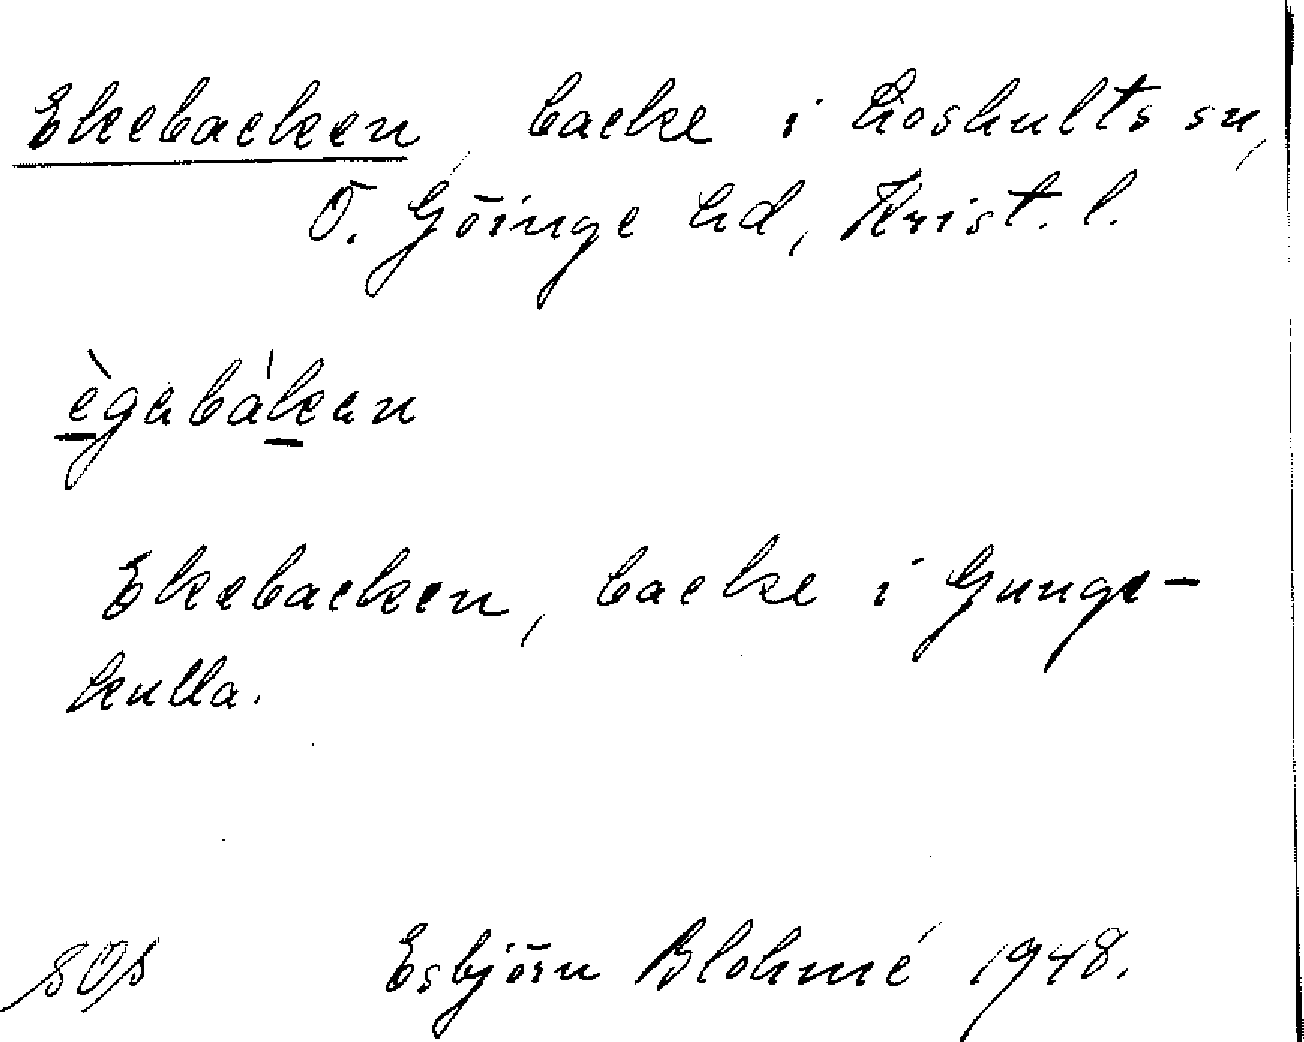 Ekebacken, backe i Loshults sn,
Ö. Göinge hd, Krist. l.
ègabák̠an
Ekebacken, backe i Gunge-
kulla.
Esbjörn Blohmé 1948.